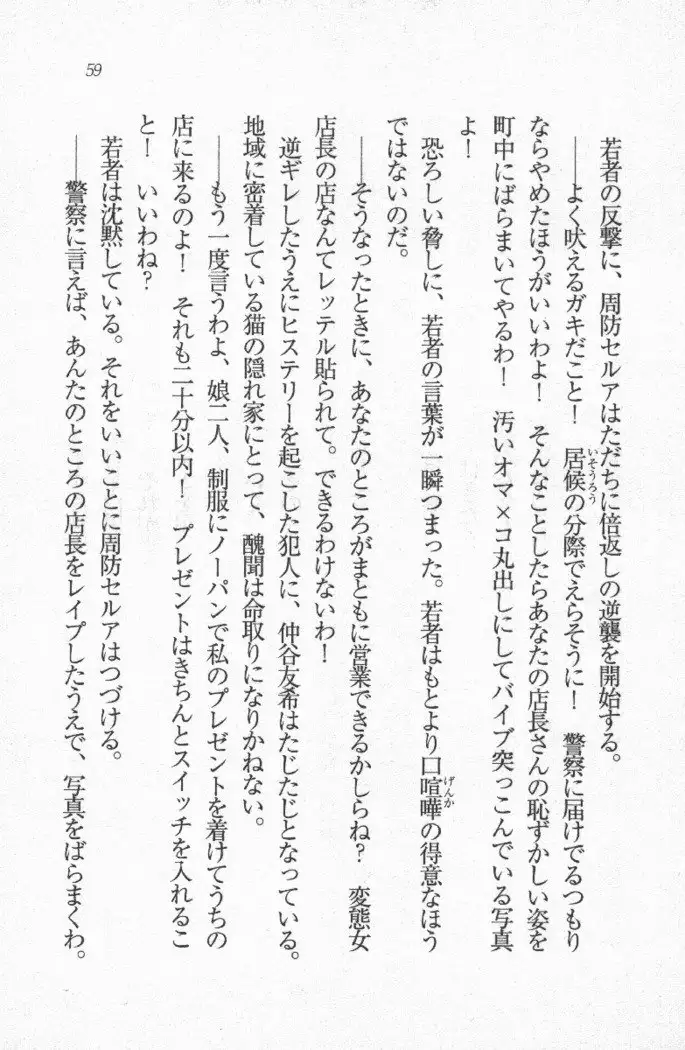 59
若者の反撃に、周防セルアはただちに倍返しの逆襲を開始する。
――よく吠えるガキだこと！　居候の分際でえらそうに！　警察に届けでるつもり
ならやめたほうがいいわよ！　そんなことしたらあなたの店長さんの恥ずかしい姿を
町中にばらまいてやるわ！　汚いオマ×コ丸出しにしてバイブ突っこんでいる写真
よ！
恐ろしい脅しに、若者の言葉が一瞬つまった。若者はもとより口喧嘩の得意なほう
ではないのだ。
――そうなったときに、あなたのところがまともに営業できるかしらね？　変態女
店長の店なんてレッテル貼られて。できるわけないわ！
逆ギレしたうえにヒステリーを起こした犯人に、仲谷友希はたじたじとなっている。
地域に密着している猫の隠れ家にとって、醜聞は命取りになりかねない。
――もう一度言うわよ、娘二人、制服にノーパンで私のプレゼントを着けてうちの
店に来るのよ！　それも二十分以内！　プレゼントはきちんとスイッチを入れるこ
と！　いいわね？
若者は沈黙している。それをいいことに周防セルアはつづける。
――警察に言えば、あんたのところの店長をレイプしたうえで、写真をばらまくわ。
いそうろう
げんか